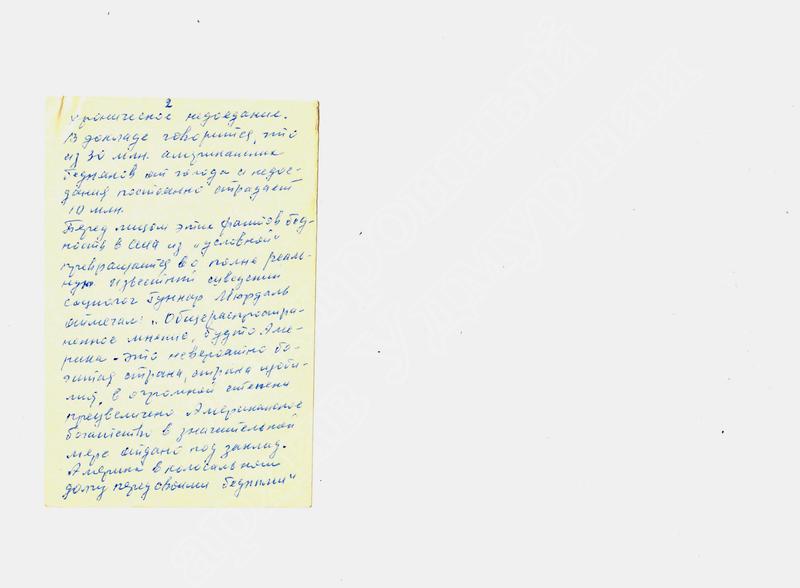 2
хроническое недоедание.
В докладе говорится, что
из 30 млн. американских
бедняков от голода и недое-
дания постоянно страдает
10 млн.
Перед лицом этих фактов бед-
ность в США из „условной"
превращается во вполне реаль-
ную. Известный шведский
социолог Гуннар Мюрдаль
отмечал: „Общераспростра-
ненное мнение, будто Аме-
рика - это невероятно бо-
гатая страна, страна изоби-
лия, в огромной степени
преувеличено. Американское
богатство в значительной
мере отдано под заклад.
Америка в колосальном
долгу перед своими бедными"